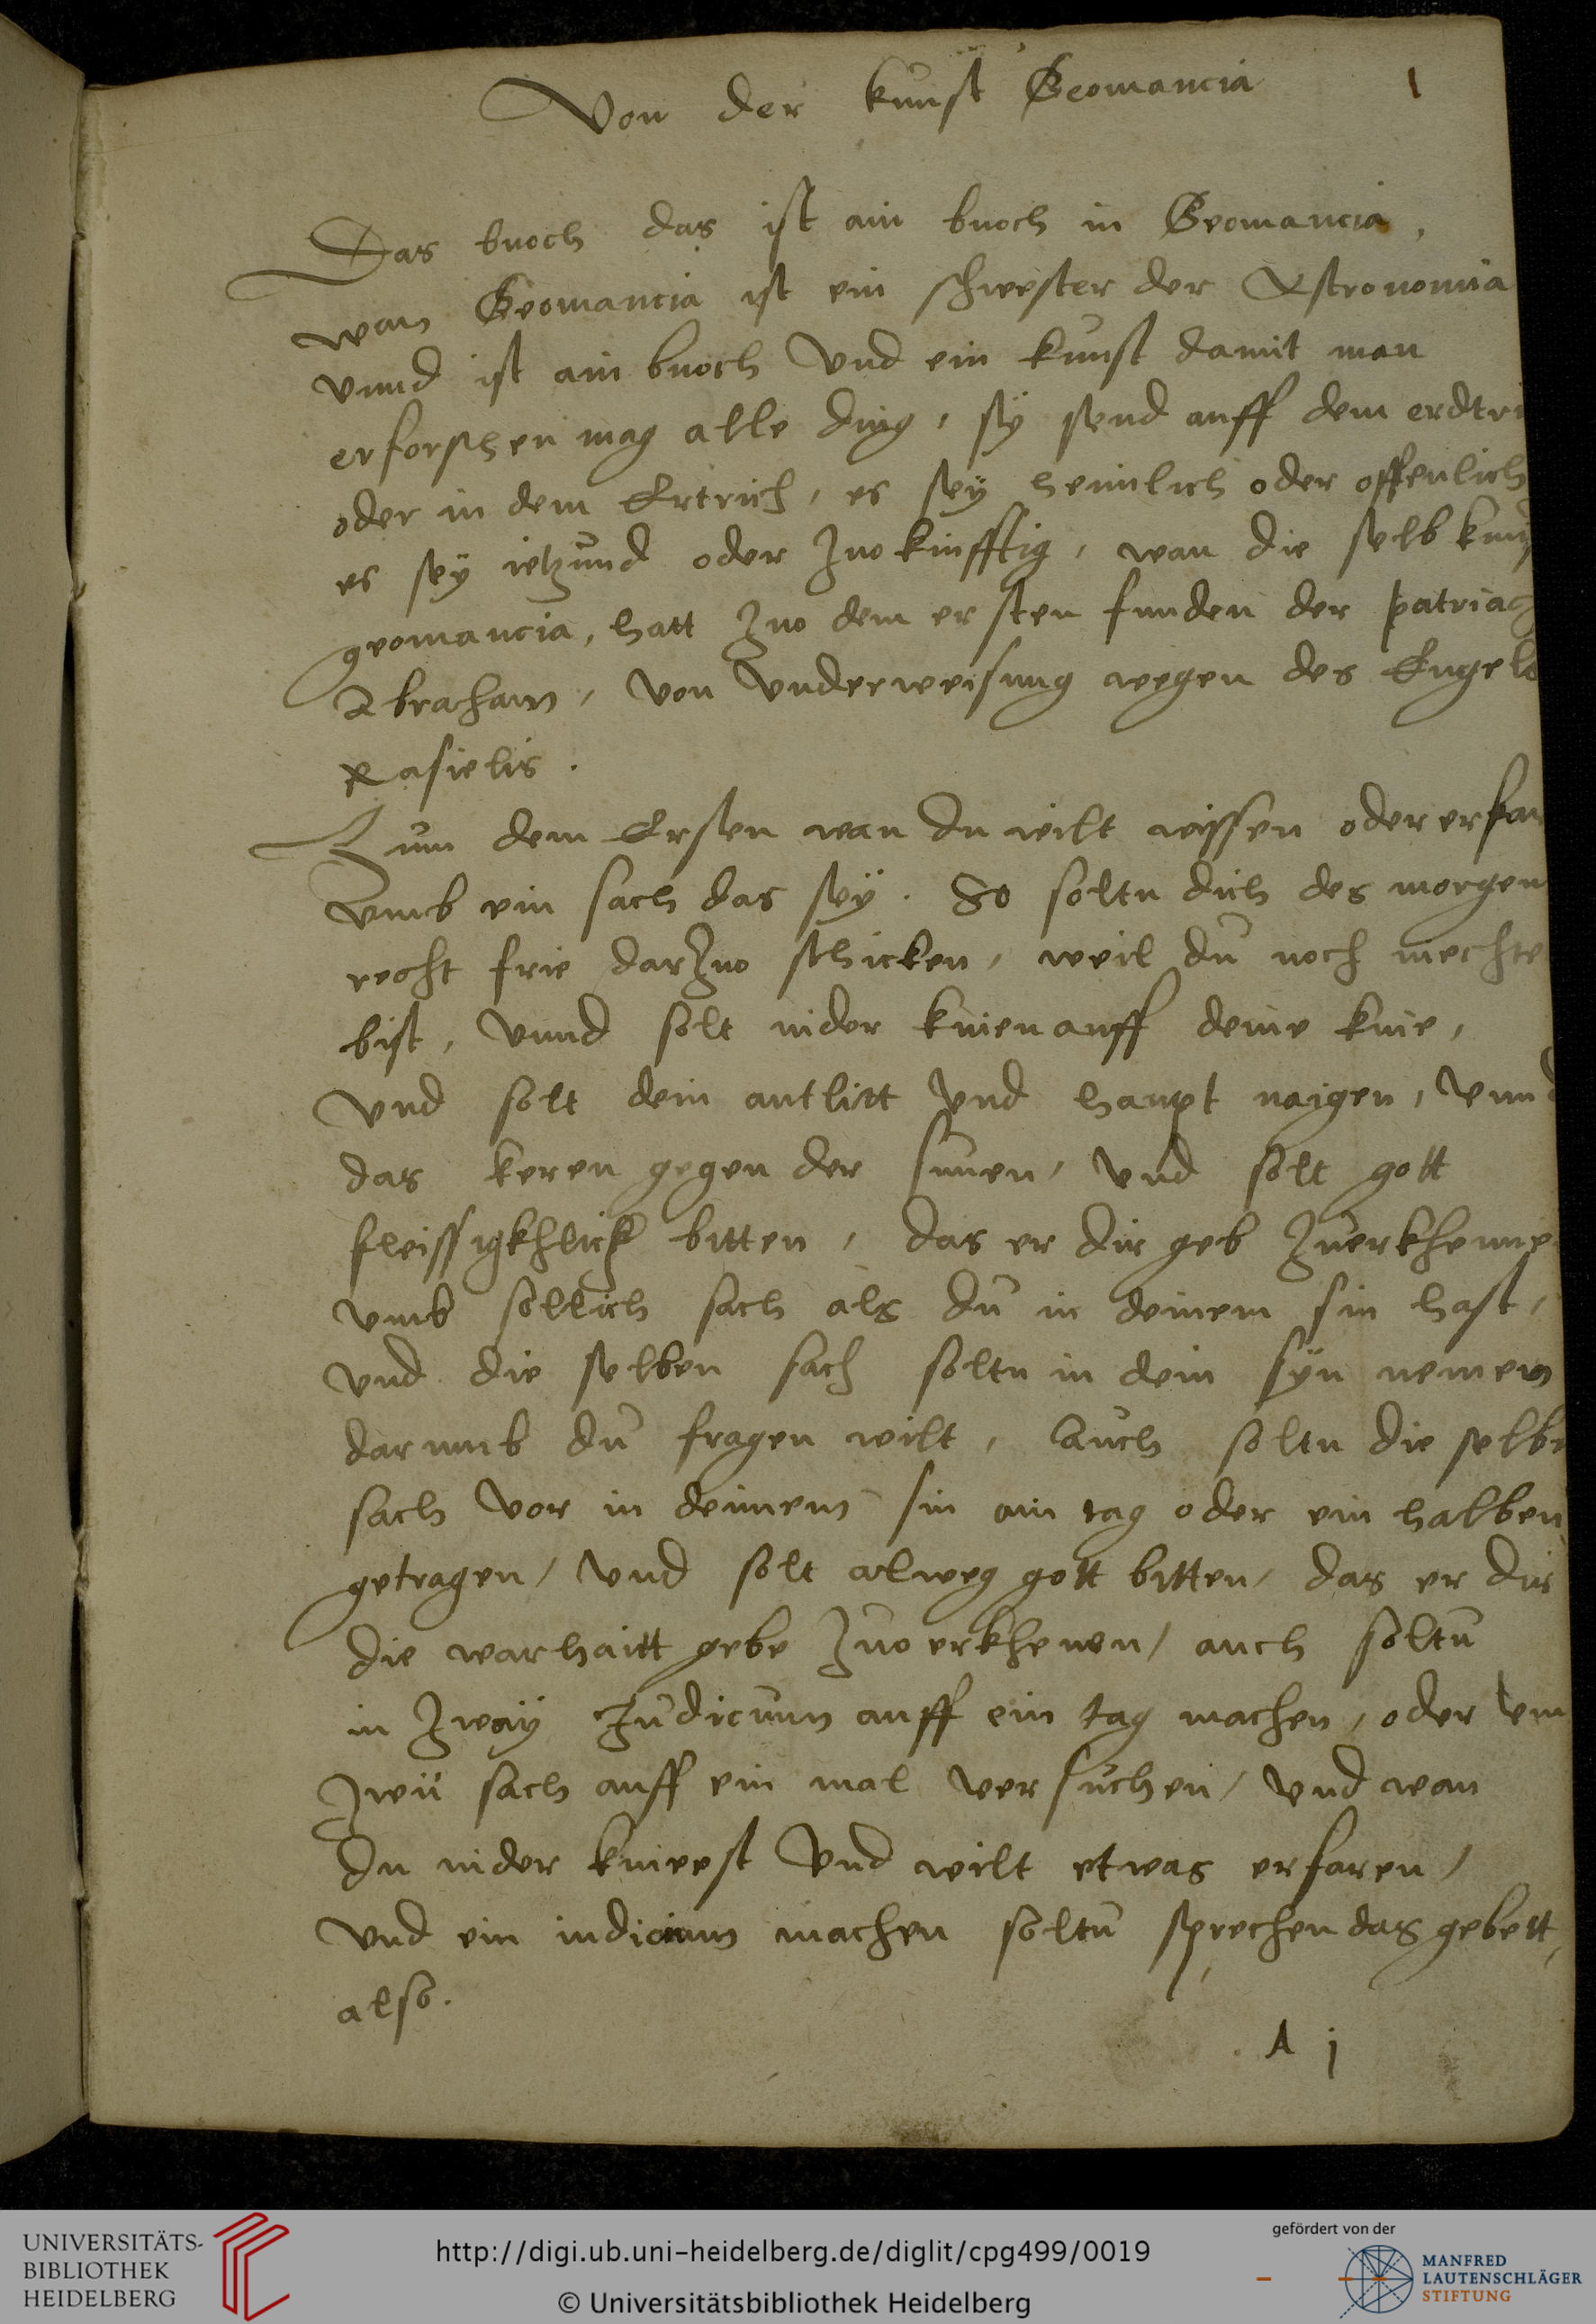 Von der kunst Geomancia 1
Das buoch das ist ain buoch in Geomancia,
wan Geomancia ist ein schwester der Astronomia
vnnd ist ain buoch Vnd ein kunst damit man
erforschen mag alle ding, sÿ send auff dem erdtri
oder in dem Ertrich, es seÿ heimlich oder offenlich
es seÿ ietzund oder zuo kinfftig, wan die selb kuns
geomancia, hatt zuo dem ersten funden der patriac
Abraham, von Vnderweisung wegen des Engels
Rasielis.
Zum dem Ersten wan du wilt wissen oder erfar
Vmb ein sach das seÿ. So soltu dich des morgen
recht frie darzuo schicken, weil du noch niechte
bist, Vnnd solt nider knien auff deine knie,
Vnd solt dein antlitt Vnd haupt naigen, Vnnd
das keren gegen der sunen, Vnd solt gott
fleissigkhlich bitten, das er dir geb zuerkhenne
vmb sollich sach als du in deinem sin hast,
Vnd die selben sach soltu in dein sÿn nemen
darumb du fragen wilt, Auch soltu die selbe
sach Vor in deinem sin ain tag oder ein halben
getragen, Vnd solt alweg gott bitten, das er dir
die warhaitt gebe zuo erkhenen, auch soltu
in zwaÿ Judicium auff ein tag machen, oder vm
zwü sach auff ein mal versuchen, Vnd wan
du nider kneest Vnd wilt etwas erfaren,
Vnd ein iudicium machen soltu sprechen das gebett,
also.
A j
UNIVERSITÄTS-
BIBLIOTHEK
HEIDELBERG
http://digi.ub.uni-heidelberg.de/diglit/cpg499/0019
© Universitätsbibliothek Heidelberg
gefördert von der
MANFRED
LAUTENSCHLÄGER
STIFTUNG